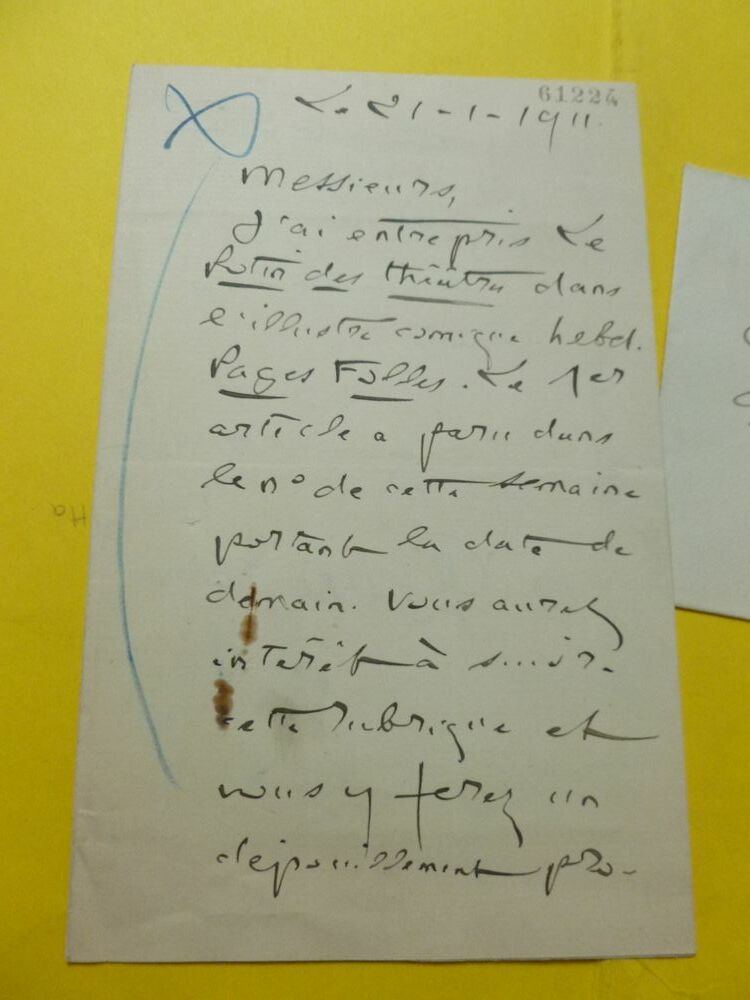 61224
Le 21-1-1911.
Messieurs,
J'ai entrepris Le
Potin des théâtres dans
l'illustré comique hebd.
Pages Folles. Le 1er
article a paru dans
le n° de cette semaine
portant la date de
demain. Vous aurez
intérêt à suivre
cette rubrique et
vous y ferez un
dépouillement pro-